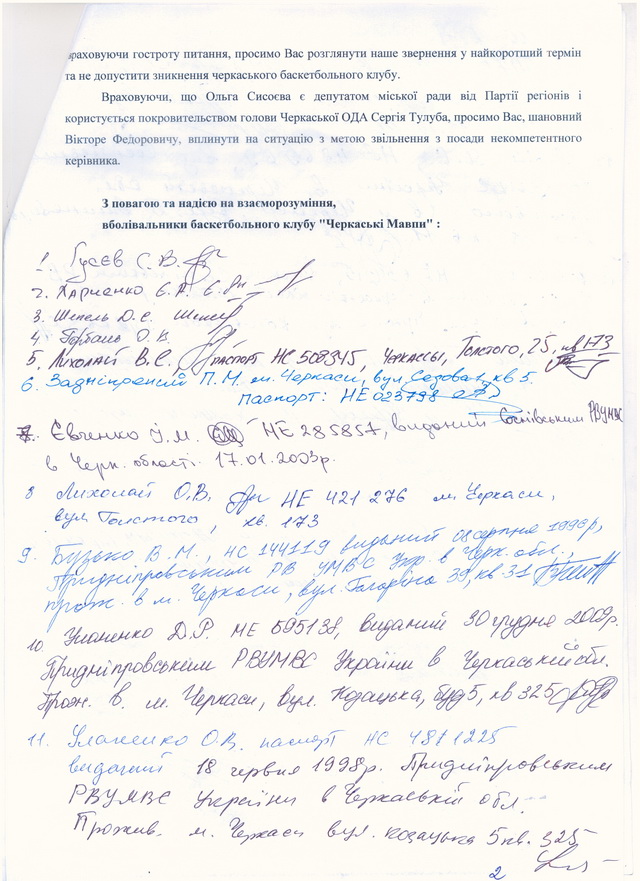 враховуючи гостроту питання, просимо Вас розглянути наше звернення у найкоротший термін
та не допустити зникнення черкаського баскетбольного клубу.
Враховуючи, що Ольга Сисоєва є депутатом міської ради від Партії регіонів і
користується покровительством голови Черкаської ОДА Сергія Тулуба, просимо Вас, шановний
Вікторе Федоровичу, вплинути на ситуацію з метою звільнення з посади некомпетентного
керівника.
З повагою та надією на взаєморозуміння,
вболівальники баскетбольного клубу "Черкаські Мавпи" :
1. Гусєв С.В.
2. Харченко Є.А.
3. Шепель Д.Є. Шепель
4. О.В.
5. Лихолай В.Є., паспорт НС 508345, Черкассы, Толстого, 25, кв 173
6. Задніпрений П.М. м. Черкаси, вул. Сєдова 1, кв 5.
паспорт: НЕ 023798
7. Євченко І.М. НЕ 285857, виданий Соснівським РВУМВС
в Черк. області 17.01.2003р.
8 Лихолай О.В. НЕ 421 276 м. Черкаси,
вул Толстого, кв. 173
9. Бузько В.М., НС 144119 виданий серпня 1996р,
Придніпровським РВ УМВС Укр. в Черк. обл.,
прож. в м. Черкаси, вул. Гагаріна 39, кв 31
10. Уманенко Д.Р. НЕ 595138, виданий 30 грудня 2009р.
Придніпровським РВУМВС України в Черкаській обл.
Прож. в. м. Черкаси, вул. Козацька, буд 5, кв 325
11. О.В. паспорт НС 481225
виданий 18 червня 1998р. Придніпровським
РВУМВС України в Черкаській обл.
Прожив. м. Черкаси вул. козацька 5 кв. 325
2